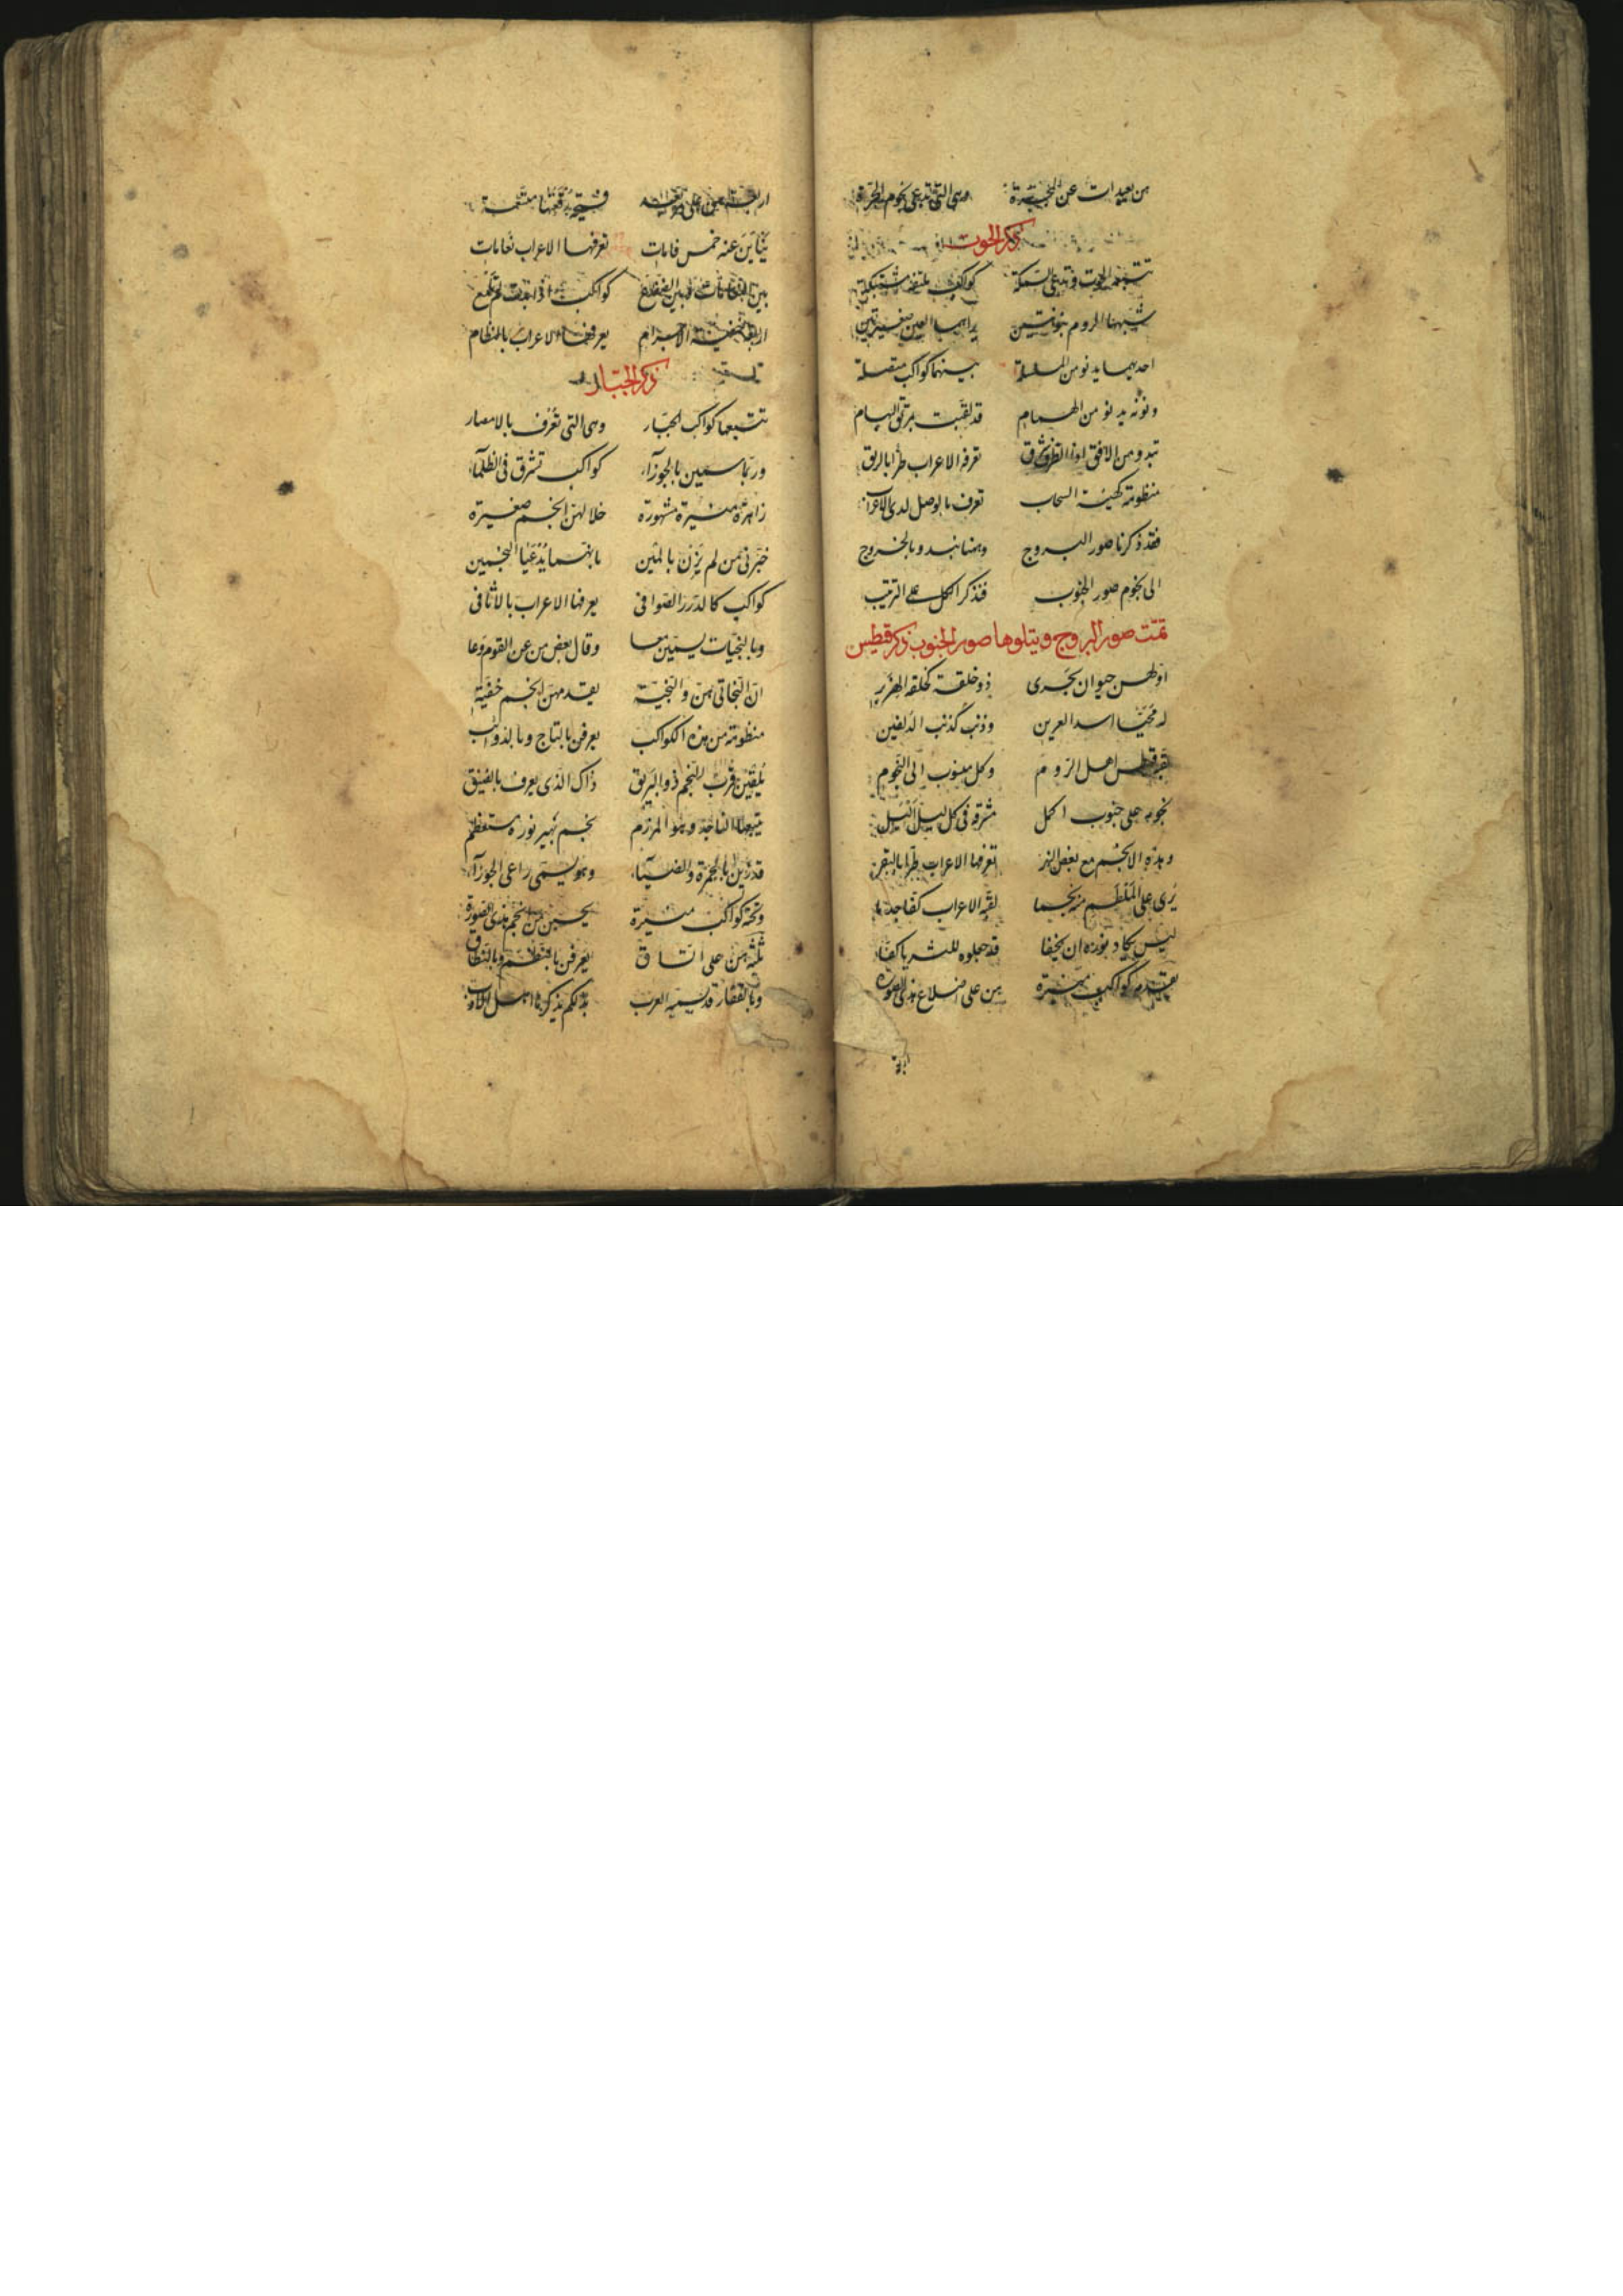 هن بعيدات عن المجرة وهى التى تدعى نجوم الجرة
ذكر الحوت
تتبعها الحوت وتدعى السمكة كواكب ملتفة مشتبكة
شبهها الروم بنونتين يراهما العين صغيرتين
احديهما يدنو من السلسلة بينهما كواكب متصلة
ونونه يدنو من الهمام قد لقبت
تبدو من الافق اذا تعرفه الاعراب طرا بالريق
منظومة كهيئة السحاب تعرف بالوصل لدى الاعراب
فقد ذكرنا صور البروج وهنا نبدو بالخروج
الى نجوم صور الجنوب فنذكر الكل على الترتيب
تمت صور البروج ويتلوها صور الجنوب ذكر قطيس
اولهن حيوان بحرى ذو خلقة كخلقه الهزبر
له محيا اسد العرين وذنب كذنب الدلفين
قطس اهل الروم وكل منسوب الى النجوم
نجومه على جنوب اكمل مشرقة فى كل ليل اليل
وهذه الانجم مع بعض النهر تعرفها الاعراب طرا بالبقر
يرى على الملطم منه نجما لقبه الاعراب كفا جذما
ليس يكاد نوره ان يخفا قد جعلوه للثريا كفا
يقدمه كواكب منيرة هن على اضلاع هذى الصورة
اربعة
ينأين عنه خمس قامات تعرفها الاعراب نعامات
بين النعامات وبين الضفدع كواكب اذا بدت لم تلمع
اربعة خفية الاجرام يعرفها الاعراب بالنظام
ذكر الجبار
تتبعها كواكب الجبار وهى التى تعرف بالامصار
وربما سمين بالجوزآء كواكب تشرق فى الظلمآء
زاهرة منيرة مشهورة خلالهن انجم صغيرة
خبرنى من لم يزن بالمين بانهما يدعيا النجمين
كواكب كالدرر الصوافى يعرفها الاعراب بالاثافى
وبالنجيات يسمين معا وقال بعض من عن القوم وعا
ان النجاتى هن والنجية يقدمهن انجم خفية
منظومة من هذه الكواكب يعرفن بالتاج وبالذوائب
يلقين قرب النجم ذو البريق ذاك الذى يعرف بالفنيق
يتبعها الناجذ وهو المرزم نجم بهير نوره مستعظم
قد زين بالحمرة والضيآء وهو يسمى راعى الجوزآء
وتحته كواكب منيرة يحسبن من انجم هذى الصورة
ثلثة هن على اتساق يعرفن بالنظم وبالنطاق
وبالفقار قد يسميه العرب بذلكم يذكرنا اهل الادب